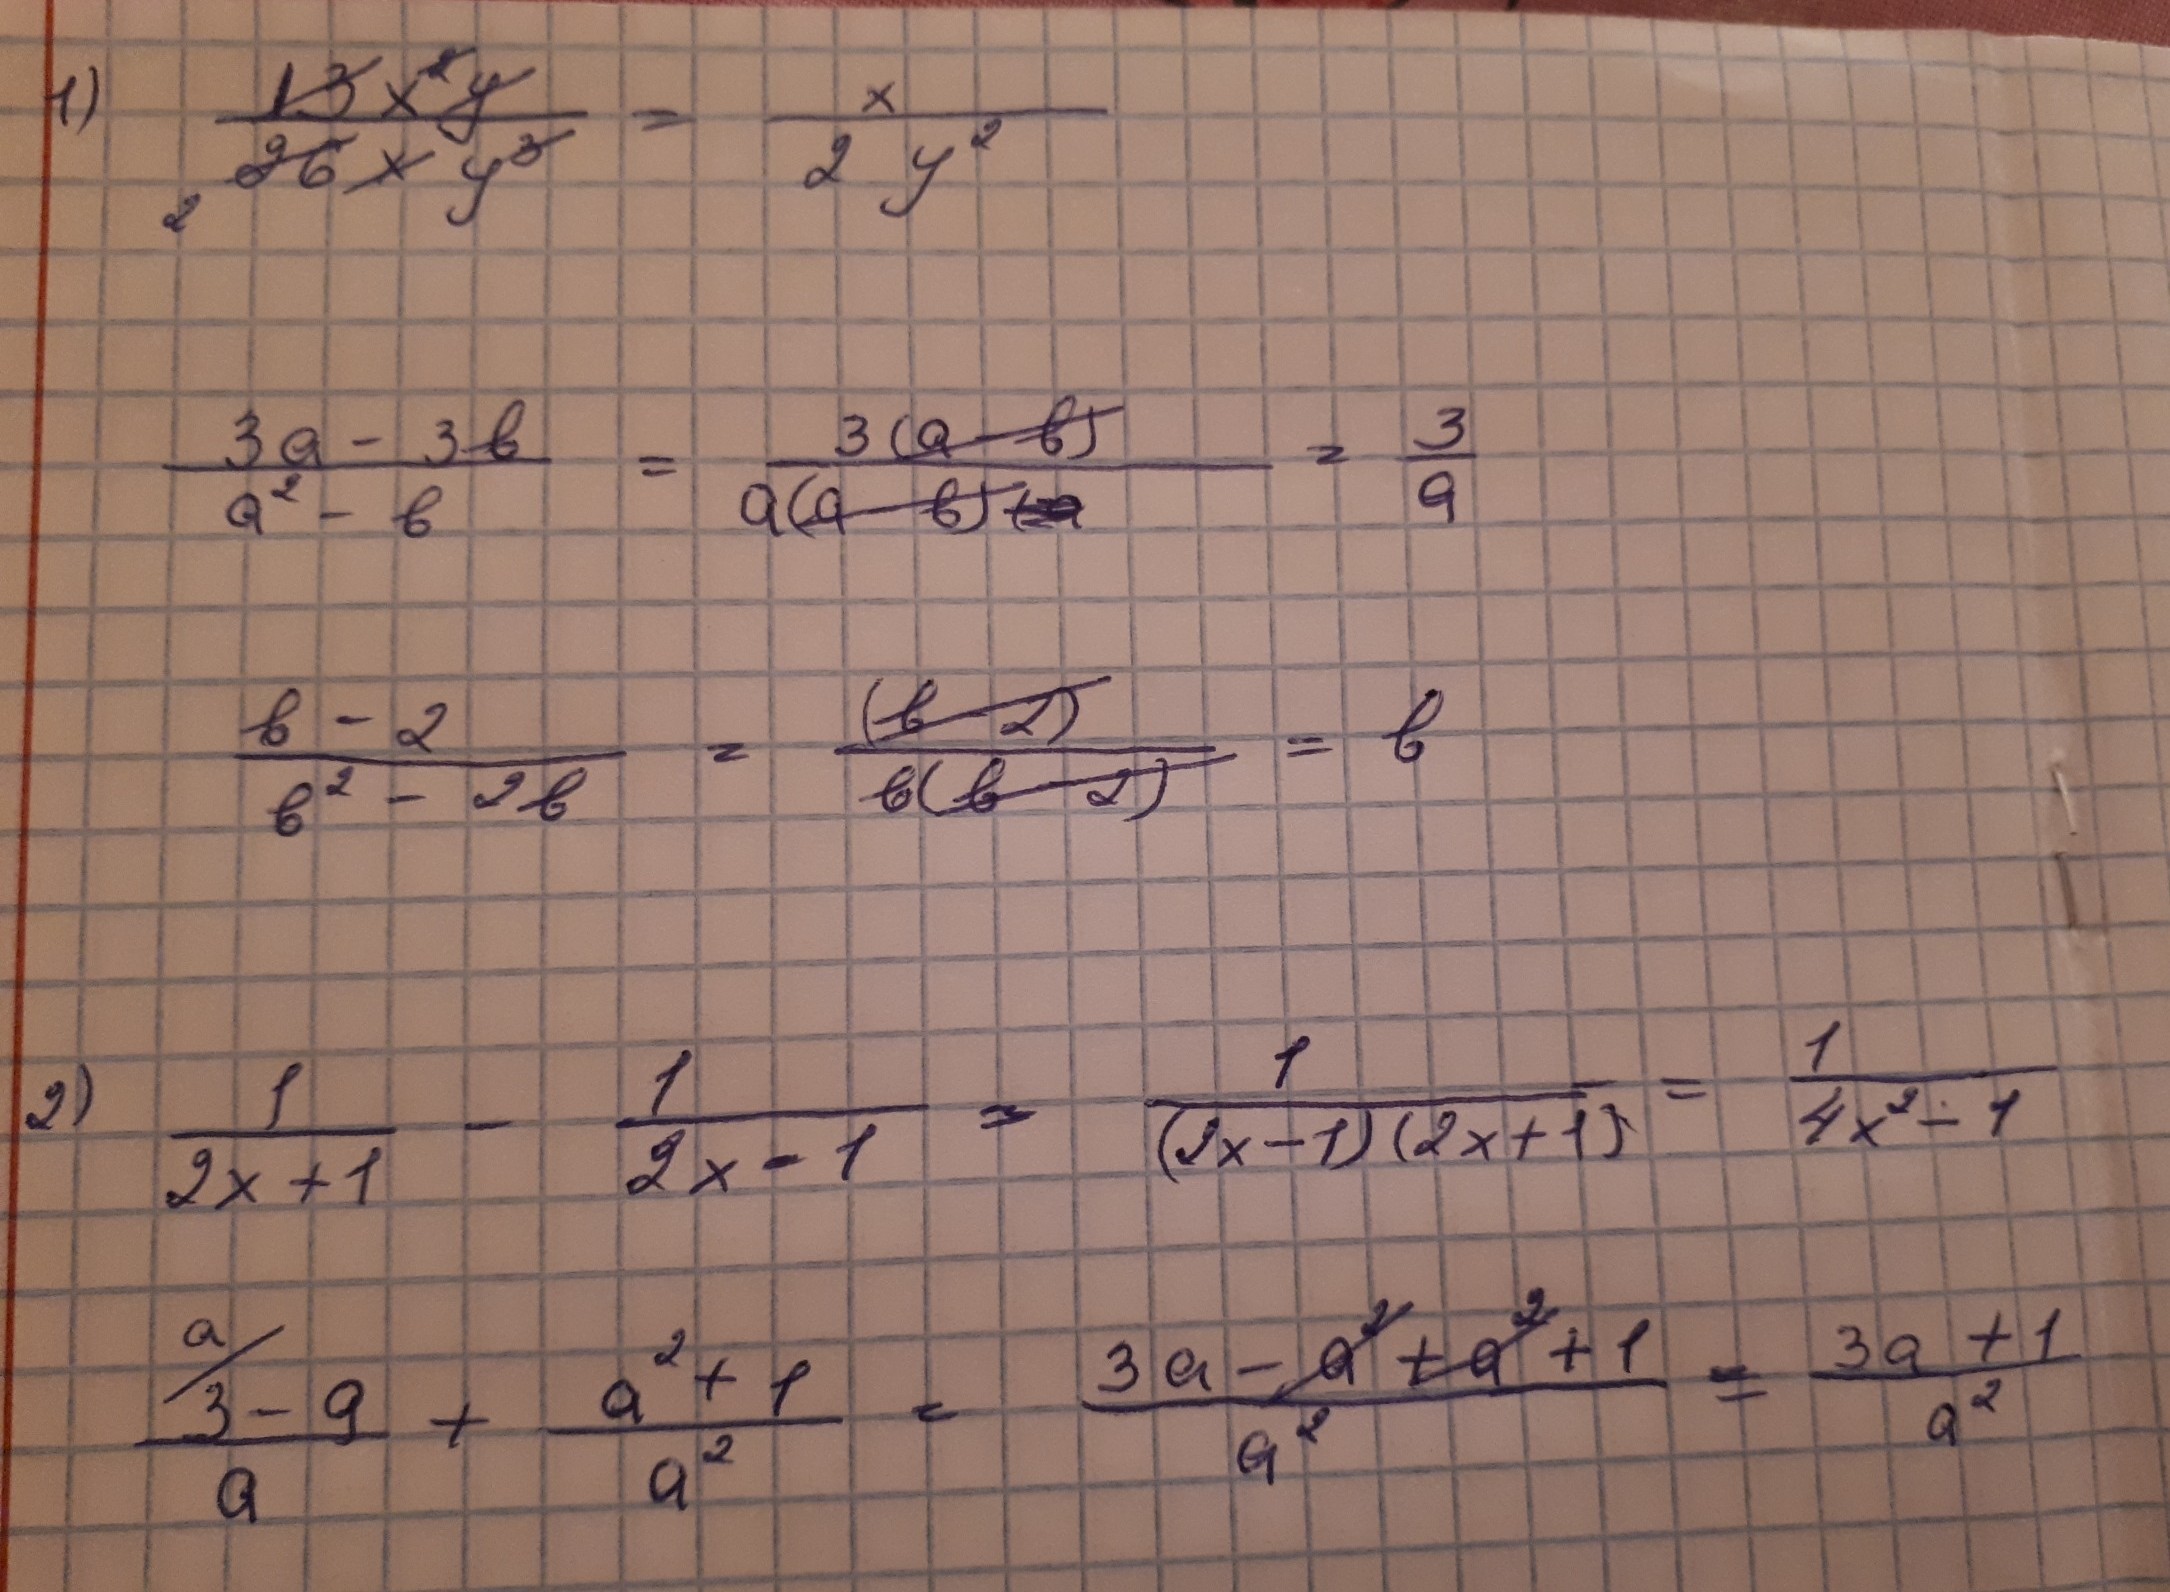 1) 13x²y / 26xy³ = x / 2y²
2
3a - 3b / a² - b = 3(a - b) / a(a - b) = 3 / a
b - 2 / b² - 2b = (b - 2) / b(b - 2) = b
2) 1 / 2x + 1 - 1 / 2x - 1 = 1 / (2x - 1)(2x + 1) = 1 / 4x² - 1
a/ 3 - a / a + a² + 1 / a² = 3a - a² + a² + 1 / a² = 3a + 1 / a²